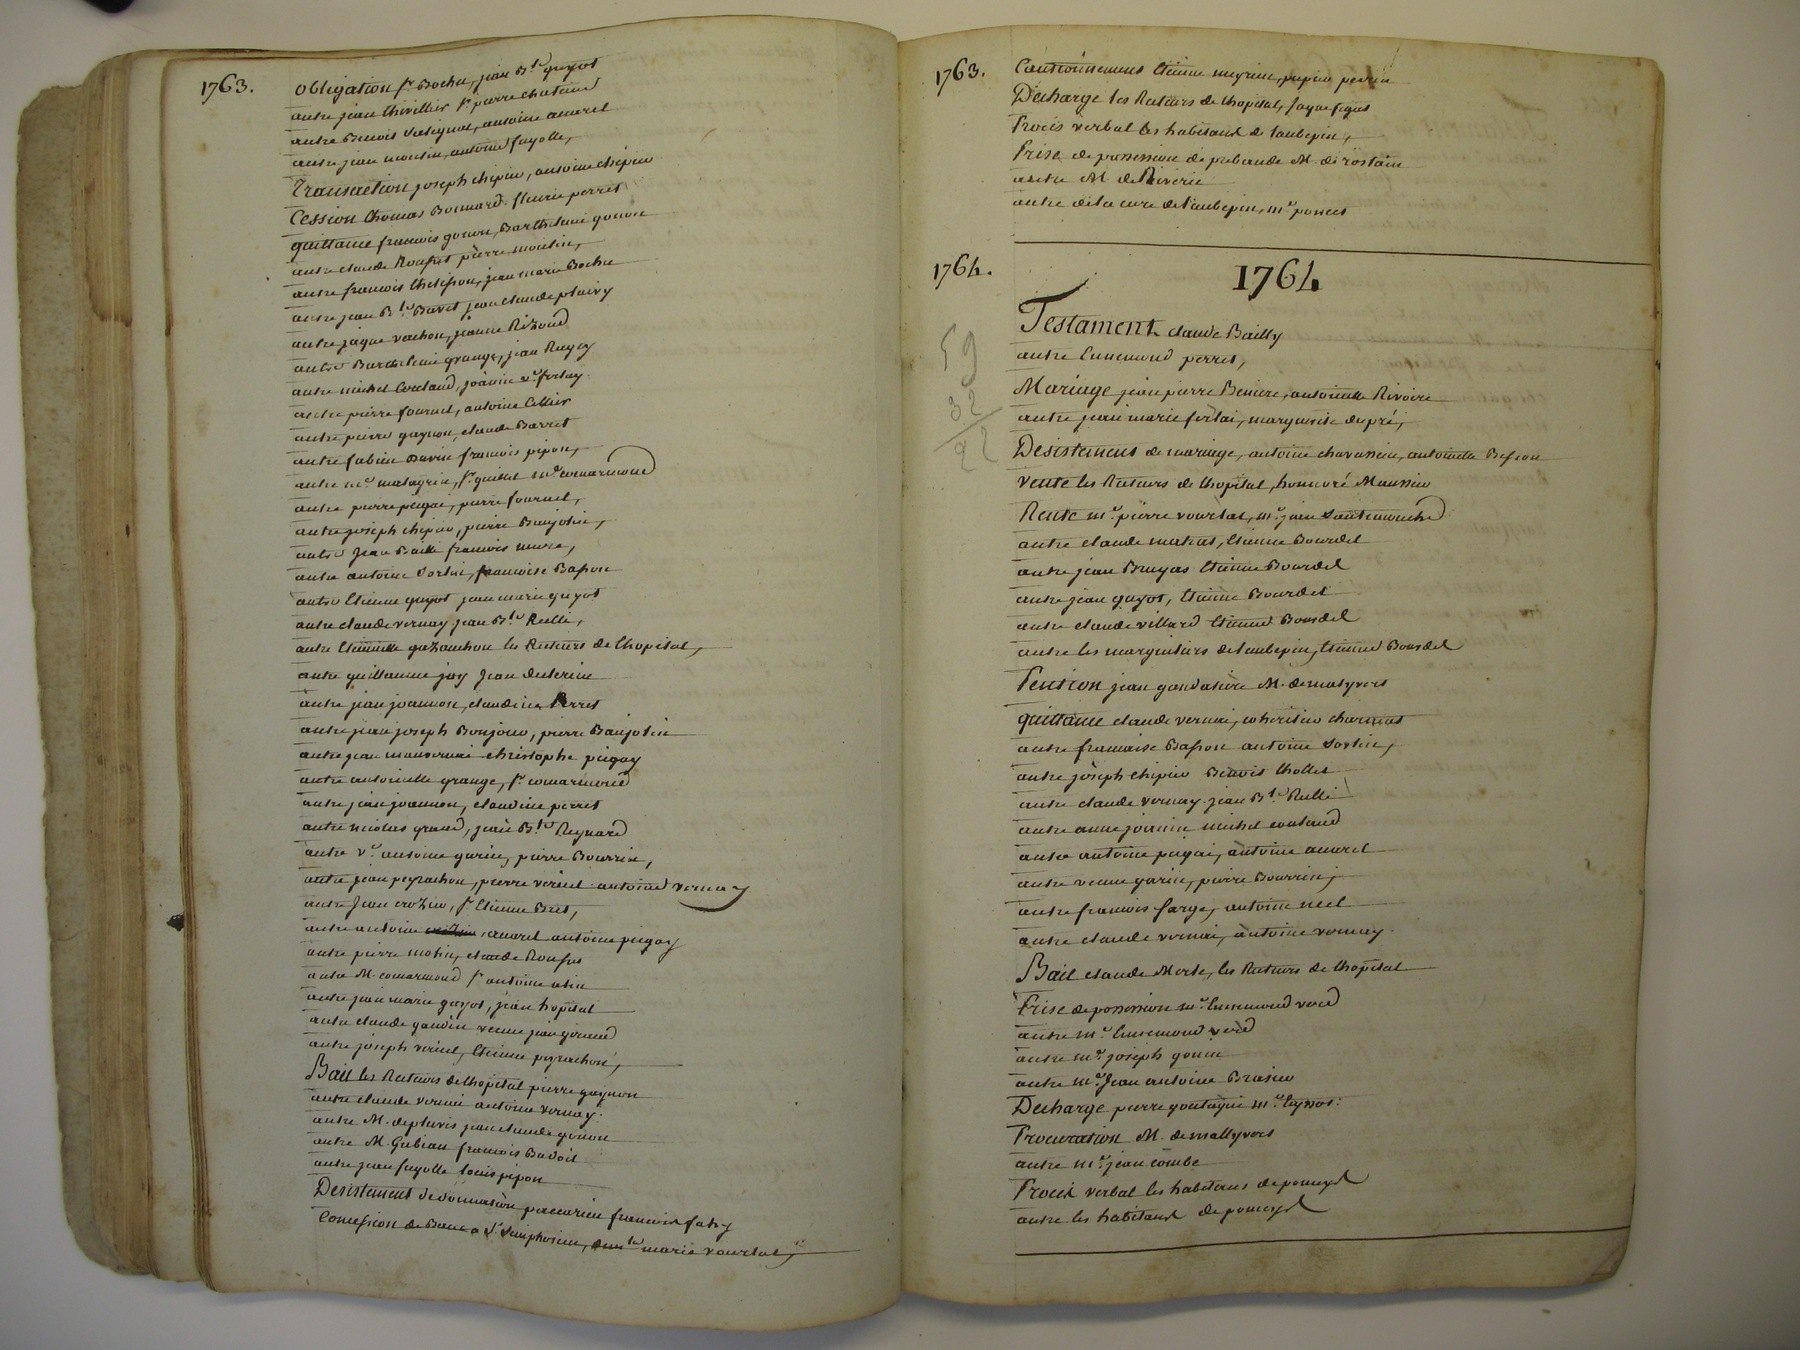 1763.
obligation sr Bochu, jean Bte guyot
autre jean thivillier sr pierre chatain
autre Benoist antoine amarel
autre jean moulin, antoine fayolle,
Transaction joseph chipier, antoine chipier
Cession thomas Bonnard fleurie perret
quittance francois gonon, Barthelemi gonon
autre claude Roufet pierre moulin,
autre francois thelisson, jean marie Bochu
autre jean Bte Bavet jean claude plaivy
autre jaque vachon, jeanne Rizoud
autre Barthelemi grange, jean Ragey
autre michel Coutaud, joannie ve fertay
autre pierre fournel, antoine Cellier
autre pierre gagnon, claude Barret
autre fabien Bavin francois pipon,
autre me matagrin, sr guillet me comarmond
autre pierre pugai, pierre fournel,
autre joseph chipier, pierre Baujolin,
autre Jean Baille francois mure,
autre antoine Sortin, francoise Basson
autre Etienne guyot jean marie guyot
autre claude vernay jean Bte Rulli,
autre Etiennette gazanchon les Recteurs de lhopital,
autre guillaume jay Jean
autre jean joannon, claudine Perret
autre jean joseph Bonjour, pierre Baujolin
autre jean christophe pugay
autre antoinette grange, sr comarmond
autre jean joannon, claudine perret
autre nicolas grand, jean Bte Reynard
autre ve antoine garin, pierre Bourrin,
autre jean peyrachon, pierre veriel antoine vernay
autre Jean crozier, sr Etienne Bret,
autre antoine amarel antoine pugay
autre pierre molin, claude Roufet
autre M. comarmond sr antoine
autre jean marie guyot, jean hopital
autre claude gaudin veuve jean giraud
autre joseph veriel, Etienne peyrachon,
Bail les Recteurs de lhopital pierre gagnon
autre claude vernai antoine vernay.
autre M. depluvis jean claude gonon
autre M. Gubian francois Badoil
autre jean fayolle louis pipon
Desistement de donnation francois fahy
Concession de Banc a St Simphorien, dmlle marie vourlat,
1763.
Cautionnement Etienne meyrieu, papin perrin
Decharge les Recteurs de lhopital,
Procès verbal les habitans de laubepin,
Prise de possession de prebande M. de rostain
autre M. de Riverie
autre de la cure de laubepin, me poncet
1764.
1764
59
32
22
Testament claude Bailly
autre Ennemond perret,
Mariage jean pierre Beniere, antoinette Rivoire
autre jean marie fertai, marguerite dupré,
Desistement de mariage, antoine chavassieu, antoinette Besson
vente les Recteurs de lhopital, honnoré Maussier
Rente me pierre vourlat, me jean Santemouche
autre claude matrat, Etienne Bourdel
autre jean Bruyas Etienne Bourdel
autre jean guyot, Etienne Bourdel
autre claude villard Etienne Bourdel
autre les marguiliers de laubepin, Etienne Bourdel
Pention jean M. de malyvert
quittance claude vernai, coheritier charmat
autre francoise Basson antoine Sortin,
autre joseph chipier Benoist thollet
autre claude vernay. jean Bte Rulli
autre anne joannin michel coutaud
autre antoine pugai, antoine amarel
autre veuve garin, pierre Bourrin,
autre francois farge, antoine neel
autre claude vernai, antoine vernay
Bail claude Merle, les Recteurs de lhopital
Prise de possession me Ennemond verd
autre me Ennemond verd
autre me joseph gonin
autre me Jean antoine Brasier
Decharge pierre me
Procuration M. de mallyvert
autre me jean combe
Procès verbal les habitans de pomeys
autre les habitans de pomeys